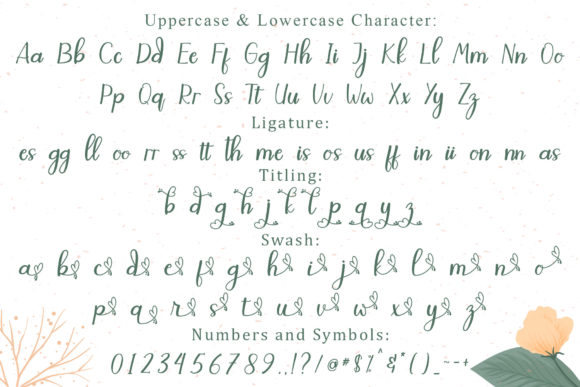 Uppercase & Lowercase Character:
Aa Bb Cc Dd Ee Ff Gg Hh Ii Jj Kk Ll Mm Nn Oo
Pp Qq Rr Ss Tt Uu Vv Ww Xx Yy Zz
Ligature:
es gg ll oo rr ss tt th me is os us ff in ii on nn as
Titling:
b d g h j k l p q y z
Swash:
a b c d e f g h i j k l m n o
p q r s t u v w x y z
Numbers and Symbols:
0123456789.,!?/@#$%^&*()_-~+